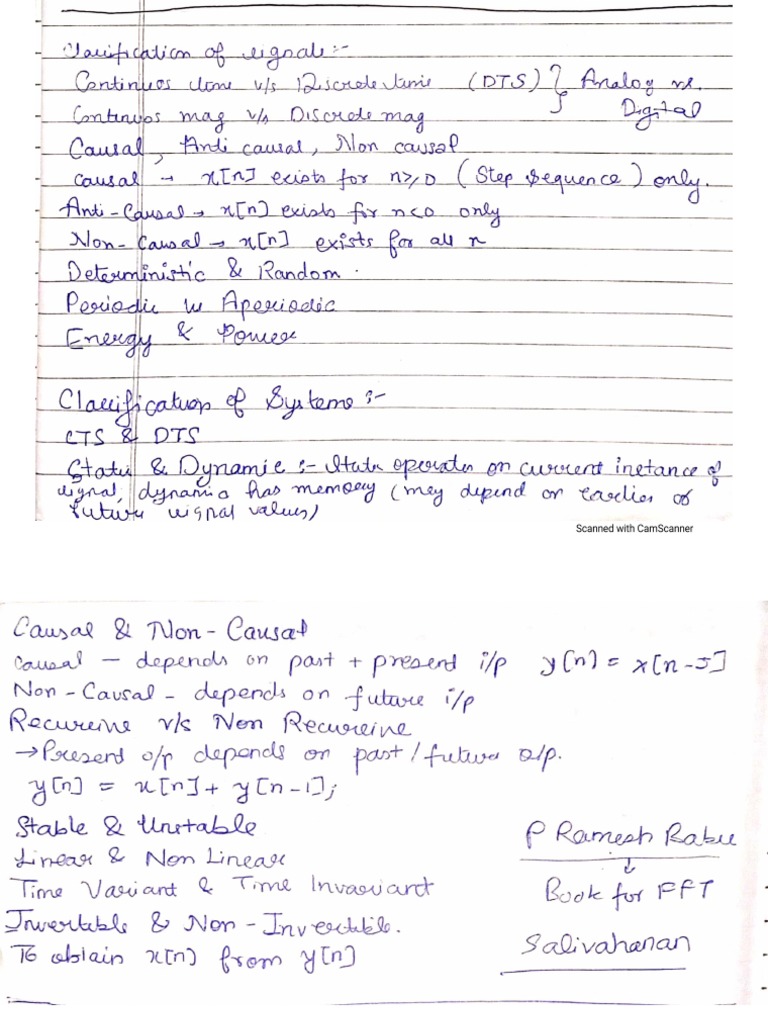 Classification of signals :-
Continuos time v/s Discrete time (DTS) } Analog vs.
Continuos mag v/s Discrete mag Digital
Causal, Anti causal, Non causal
causal → x[n] exists for n≥0 (Step Sequence) only.
Anti-Causal → x[n] exists for n<0 only
Non-Causal → x[n] exists for all n
Deterministic & Random.
Periodic vs Aperiodic
Energy & Power
Classification of Systems :-
CTS & DTS
Static & Dynamic :- Static operates on current instance of
signal, dynamic has memory (may depend on earlier or
future signal values)
Scanned with CamScanner
Causal & Non-Causal
Causal – depends on past + present i/p y[n] = x[n-5]
Non-Causal – depends on future i/p
Recursive v/s Non Recursive
→ Present o/p depends on past/future o/p.
y[n] = x[n] + y[n-1];
Stable & Unstable
Linear & Non Linear
Time Variant & Time Invariant
Invertible & Non-Invertible.
To obtain x[n] from y[n]
P Ramesh Babu
↓
Book for FFT
Salivahanan